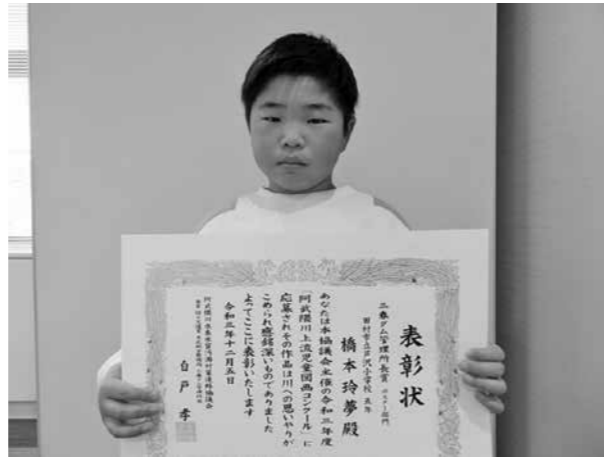 表彰状
三春ダム管理所長賞 ポスター部門
田村市立芦沢小学校 五年
橋本玲夢殿
あなたは本協議会主催の令和三年度
「阿武隈川上流児童図画コンクール」に
応募されその作品は川への思いやりが
こめられ感銘深いものでありました
よってここに表彰いたします
令和三年十二月五日
阿武隈川水系水質汚濁対策連絡協議会
白戸 孝